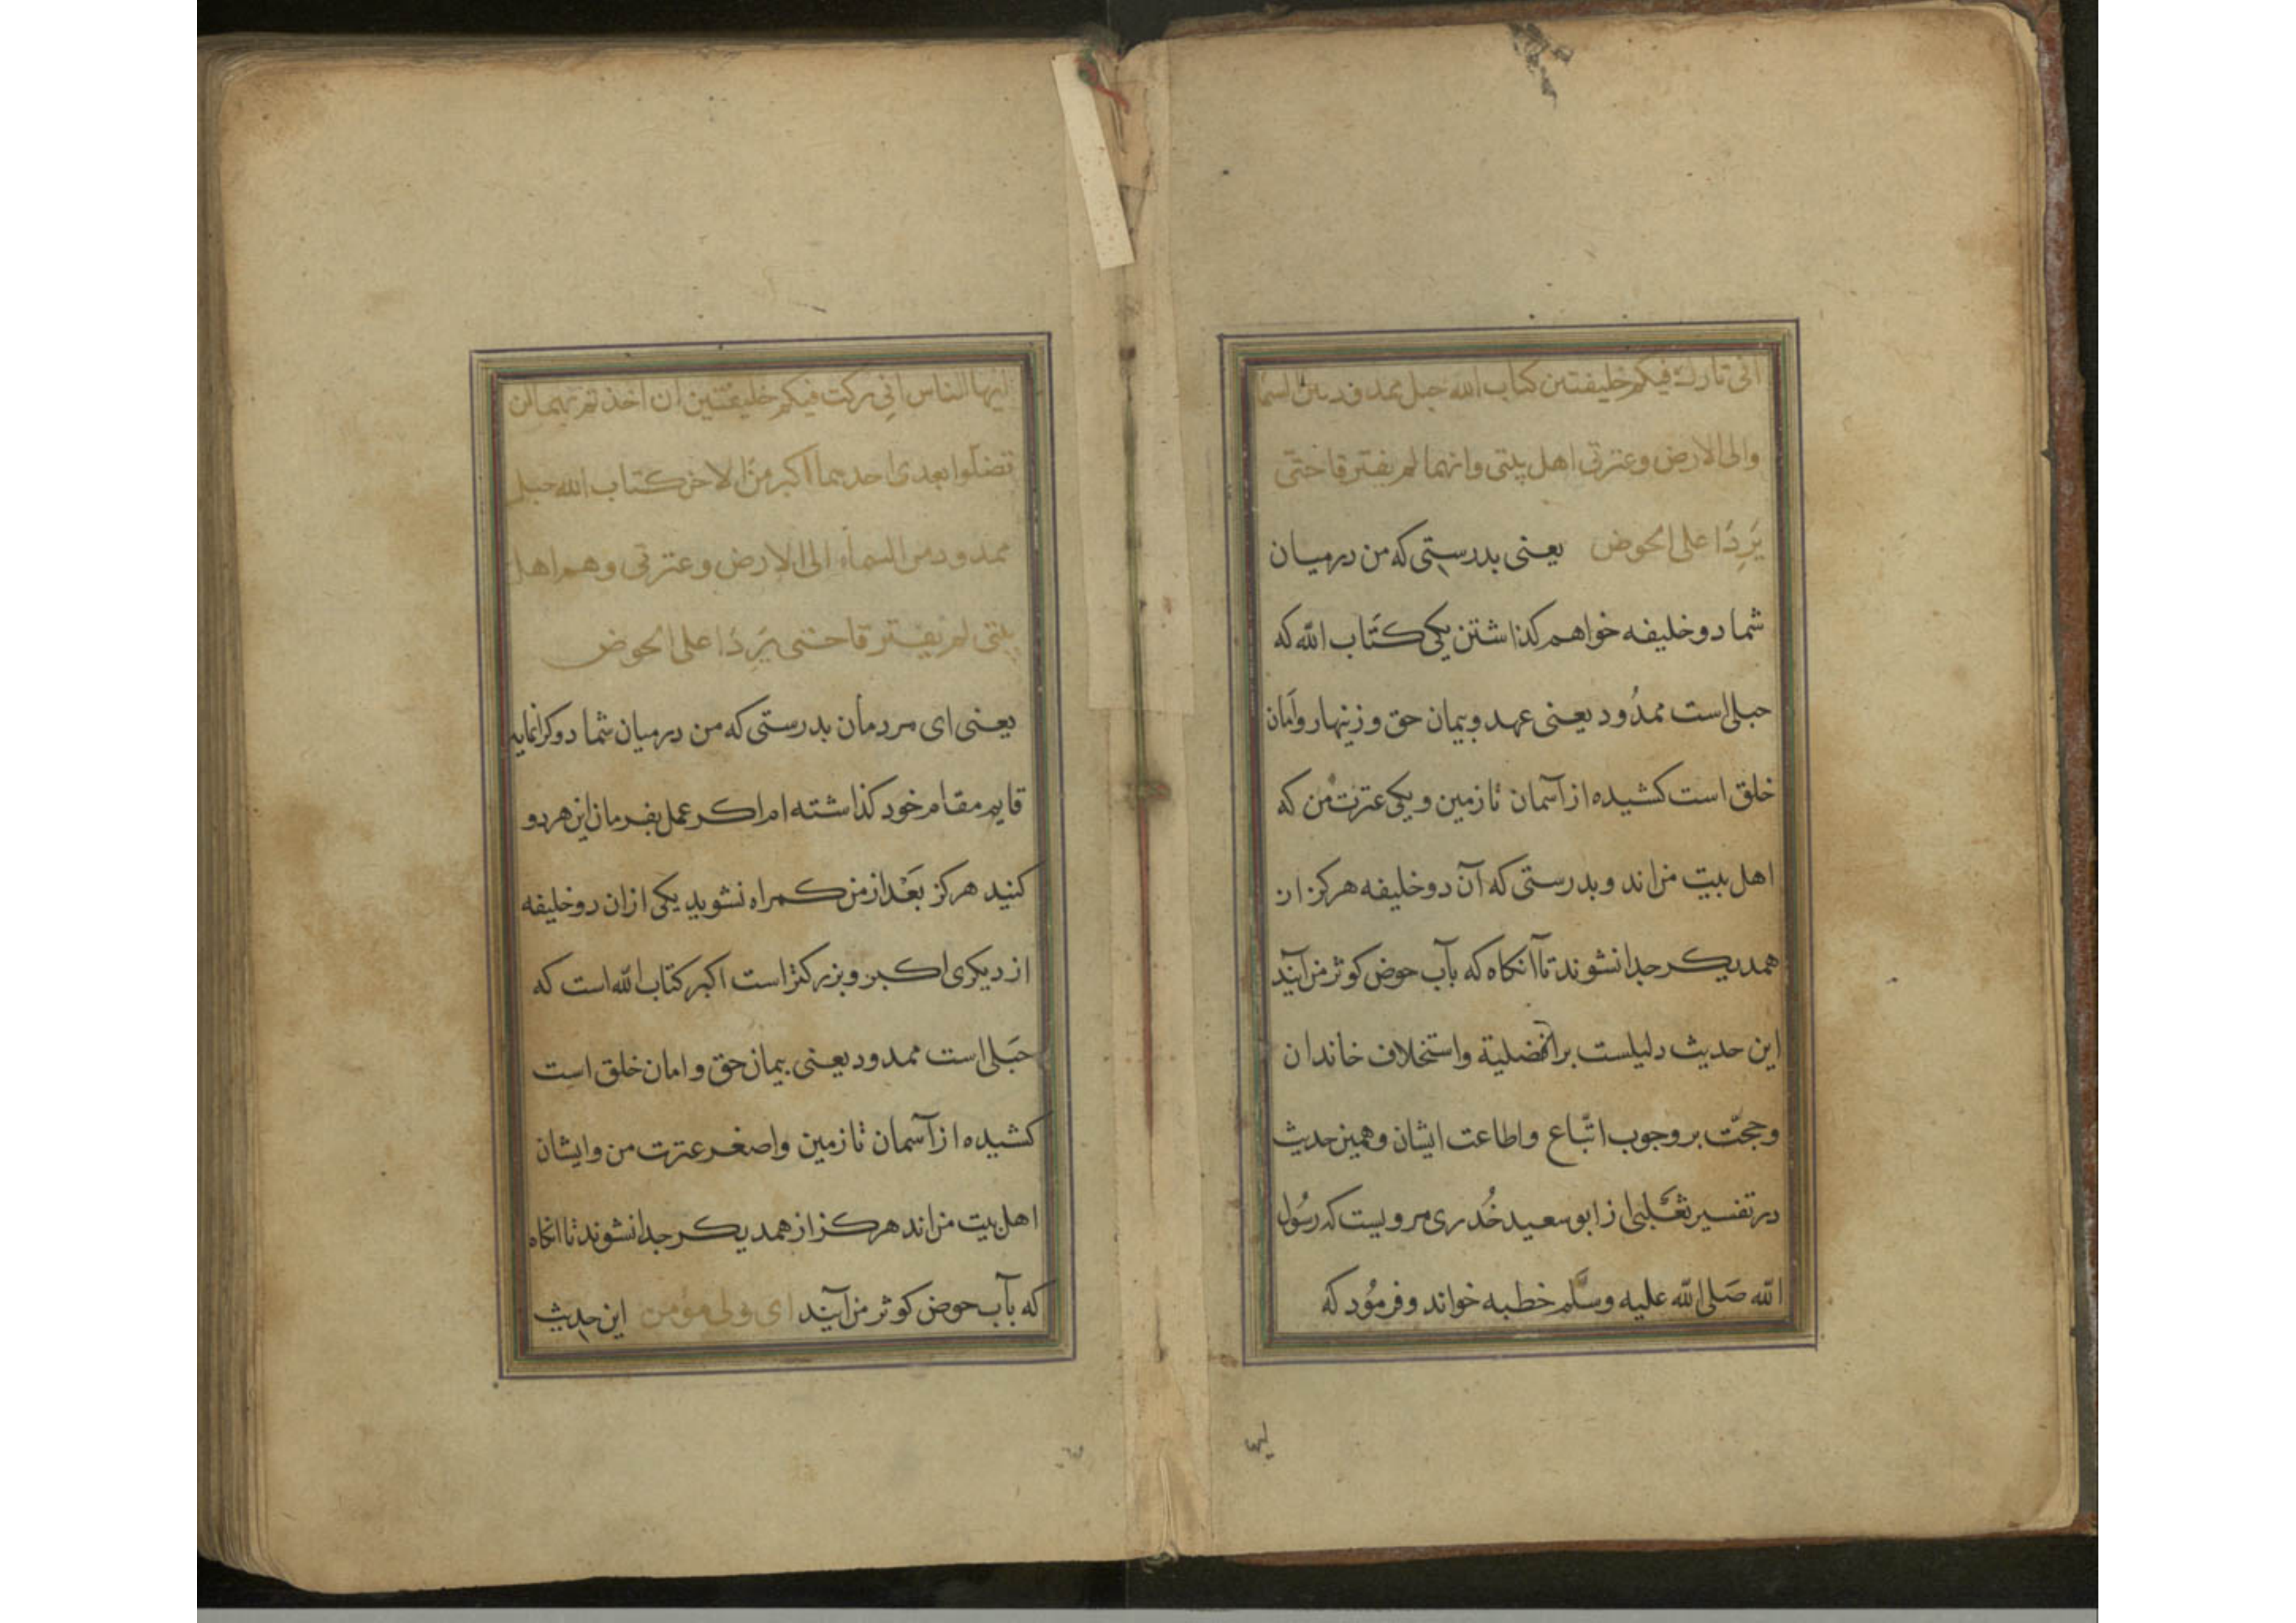 انی تارك فیکم خلیفتین کتاب الله حبل ممدود بین السما
والی الارض وعترتی اهل بیتی وانهما لم یفترقا حتّی
یَرِدَا علی الحوض یعنی بدرستی که من درمیان
شما دو خلیفه خواهم کذاشتن یکی کتاب الله که
حبلی است ممدُود یعنی عهد وپیمان حق وزینهار واَمان
خلق است کشیده از آسمان تا زمین ویکی عترت من که
اهل بیت من اند وبدرستی که آن دو خلیفه هرکز از
همدیکر جدا نشوند تا آنکاه که بآب حوض کوثر من آیند
این حدیث دلیلست بر افضلیة واستخلاف خاندان
وحجّت بر وجوب اتّباع واطاعت ایشان وهمین حدیث
در تفسیر ثعَلبی از ابو سعید خُدری مرویست که رسُول
الله صَلی الله علیه وسَلّم خطبه خواند وفرمُود که
ایها الناس انی ترکت فیکم خلیفتین ان اخذتم بهما لن
تضلّوا بعدی احدهما اکبر منَ الاخر کتاب الله حبل
ممدود من السماء الی الارض وعترتی وهم اهل
بیتی لم یفترقا حتی یَرِدَا علی الحوض
یعنی ای مردمان بدرستی که من درمیان شما دو کرانمایه
قایم مقام خود کذاشته ام اکر عمل بفرمان این هر دو
کنید هرکز بعْد از من کمراه نشوید یکی ازان دو خلیفه
از دیکری اکبر وبزرکتر است اکبر کتاب الله است که
حَبلی است ممدود یعنی پیمان حق وامان خلق است
کشیده از آسمان تا زمین واصغر عترت من وایشان
اهل بیت من اند هرکز از همدیکر جدا نشوند تا انکاه
که بآب حوض کوثر من آیند ای ولی مؤمن این حدیث
ایها